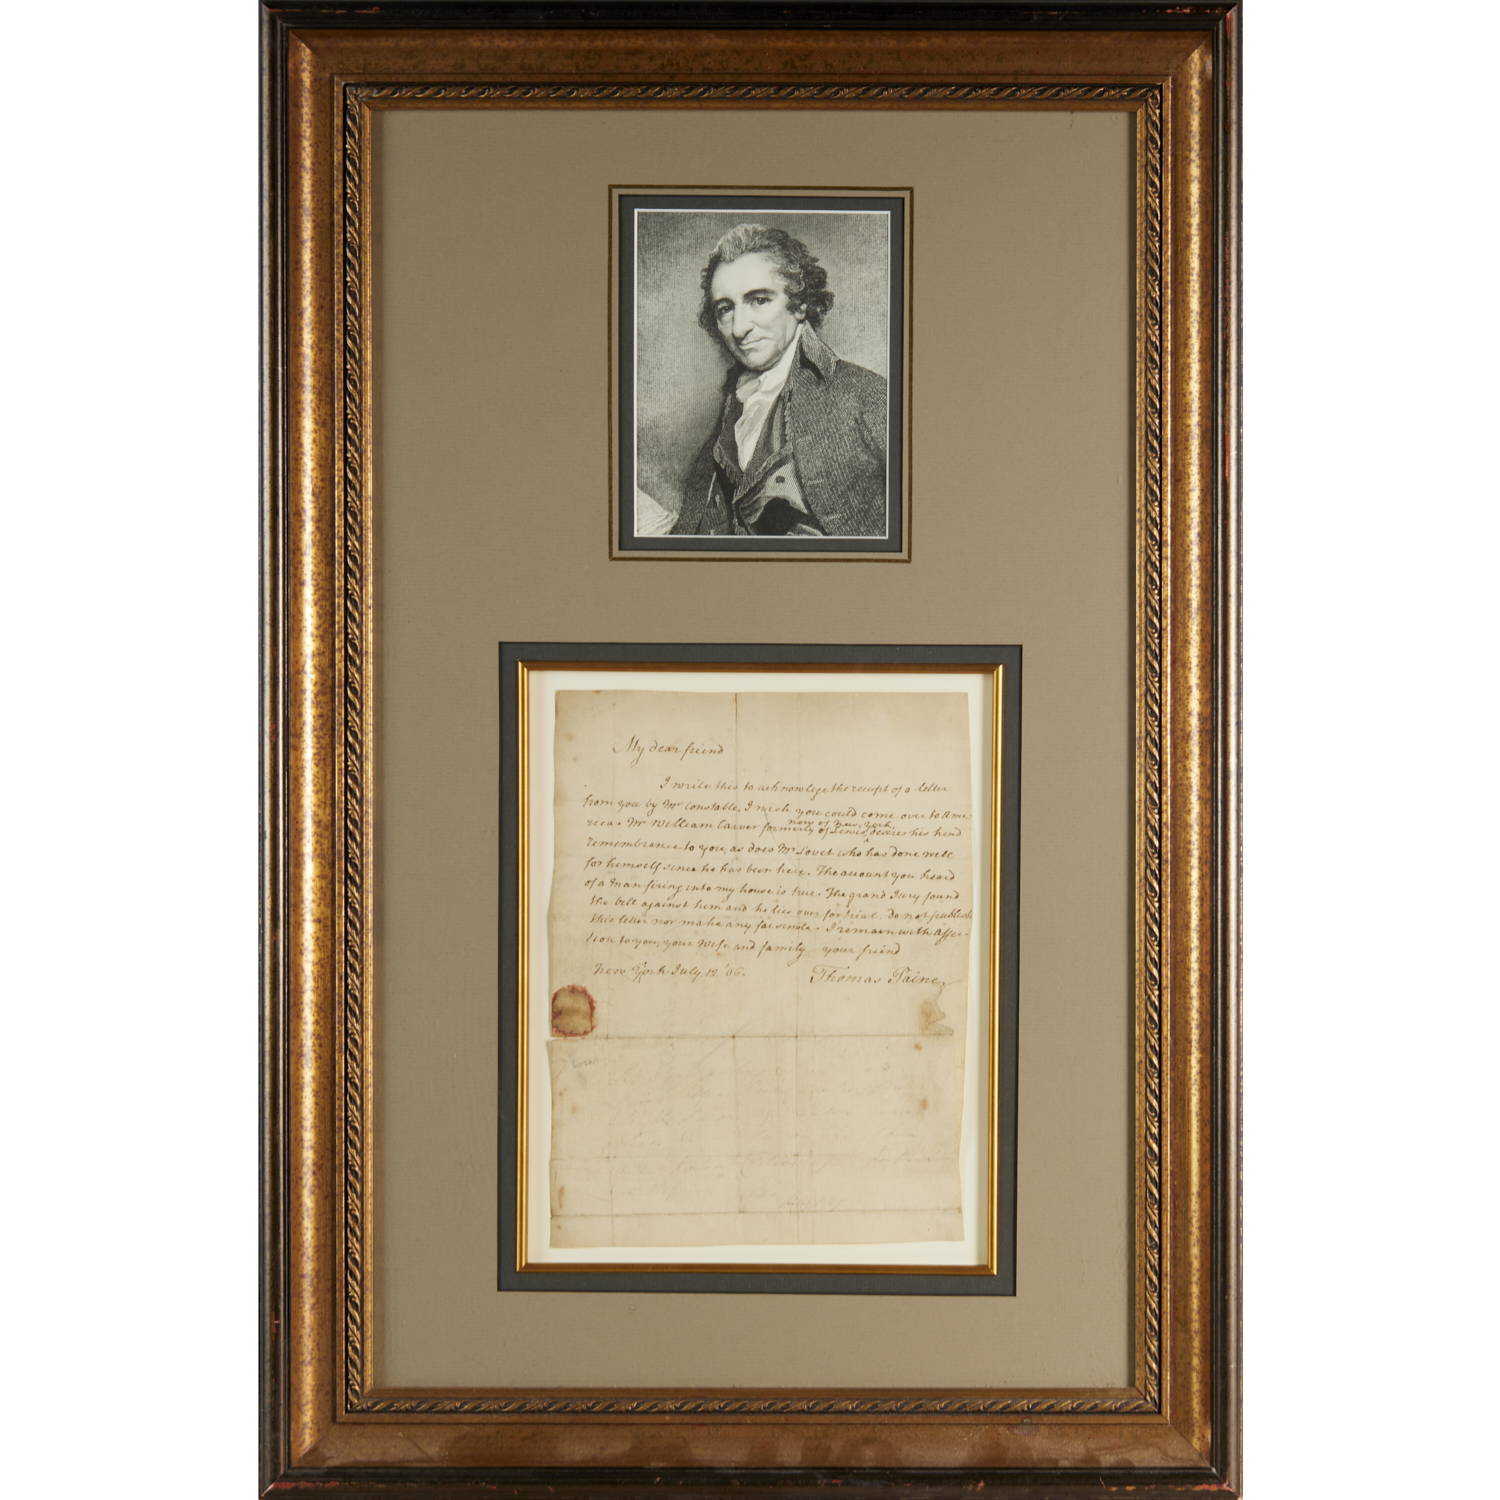 My dear friend
I write this to acknowlege the receipt of a letter
from you by Mr Constable. I wish you could come over to Ame-
rica. Mr William Carver formerly of Lewis, now of New York, desires his kind
remembrance to you, as does Mr Lovet who has done well
for himself since he has been here. The account you heard
of a man firing into my house is true. The grand Jury found
the bill against him and he lies over for trial. Do not publish
this letter nor make any facsimile. I remain with affec-
tion to you, your wife and family your friend
New York July 12 '06.
Thomas Paine